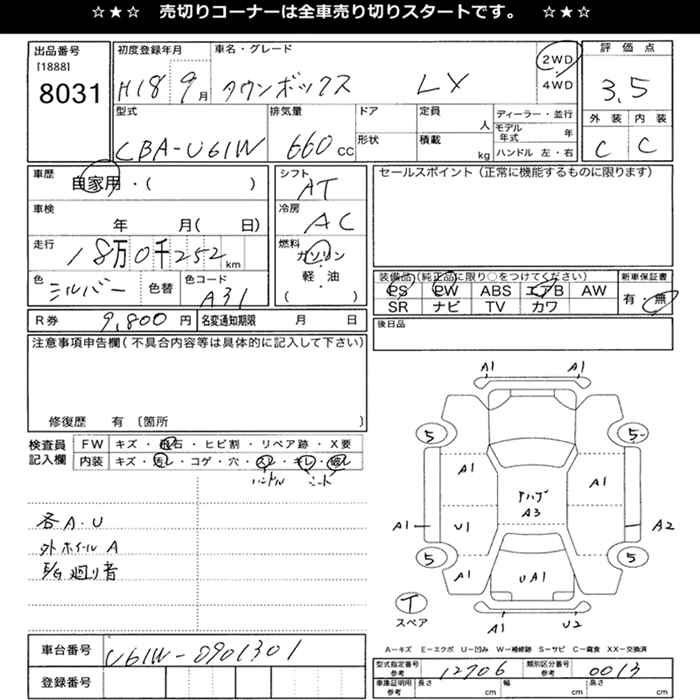 ☆★☆　売切りコーナーは全車売り切りスタートです。　☆★☆
出品番号
[1888]
8031
初度登録年月
H18 9月
車名・グレード
タウンボックス LX
2WD
4WD
評価点
3.5
外装 内装
C C
型式
CBA-U61W
排気量
660cc
ドア
形状
定員
人
積載
kg
ディーラー・並行
モデル年式 年
ハンドル 左・右
車歴
自家用・( )
車検
年 月( 日)
走行
18万0千252km
色
シルバー
色替
色コード
A31
シフト
AT
冷房
AC
燃料
ガソリン
・
軽・油
( )
セールスポイント(正常に機能するものに限ります)
装備品(純正品に限り○をつけてください)
PS PW ABS エアB AW
SR ナビ TV カワ
新車保証書
有・無
R券 9,800円
名変通知期限 月 日
後日品
注意事項申告欄(不具合内容等は具体的に記入して下さい)
修復歴 有 〔箇所 〕
検査員
記入欄
FW キズ・飛石・ヒビ割・リペア跡・X要
内装 キズ・汚レ・コゲ・穴・スレ・キレ・破レ
ハンドル シート
各A・U
外ホイールA
E/G廻り音
A1 A1
5 5
A1 A1
A1 U1 A2
アハゲ
A3
5 5
A1
UA1
T
スペア
A1 U2
A-キズ E-エクボ U-凹み W-補修跡 S-サビ C-腐食 XX-交換済
車台番号
U61W-0901301
登録番号
型式指定番号
参考
12706
類別区分番号
参考
0013
車庫証明用
参考
長さ cm
幅 cm
高さ cm